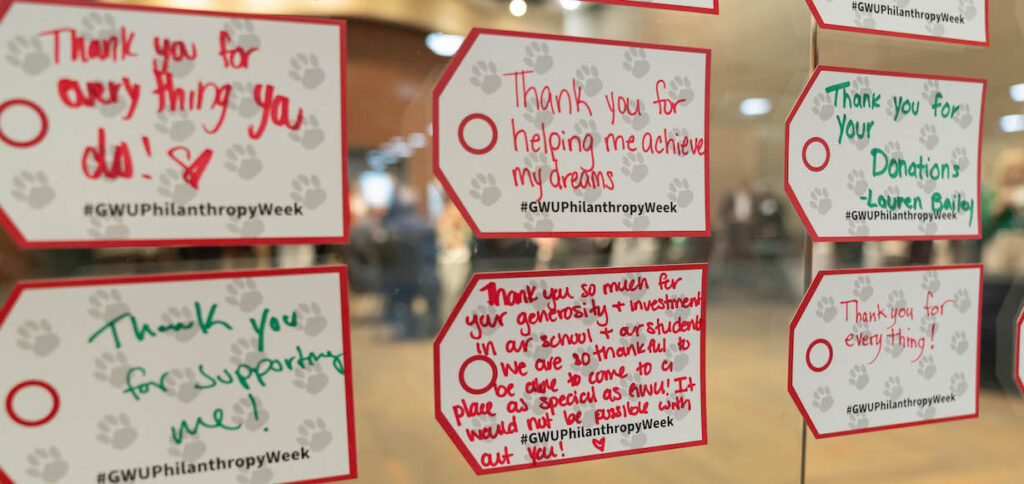 Thank you for
every thing ya
do!
#GWUPhilanthropyWeek
Thank you for
helping me achieve
my dreams
#GWUPhilanthropyWeek
#GWUPhilanthropyWeek
Thank you for
your
Donations
-Lauren Bailey
#GWUPhilanthropyWeek
Thank you
for supporting
me!
#GWUPhilanthropyWeek
Thank you so much for
your generosity + investment
in our school + our students
We are so thankful to
be able to come to a
place as special as GWU! It
would not be possible with
#GWUPhilanthropyWeek
out you!
Thank you for
everything!
#GWUPhilanthropyWeek